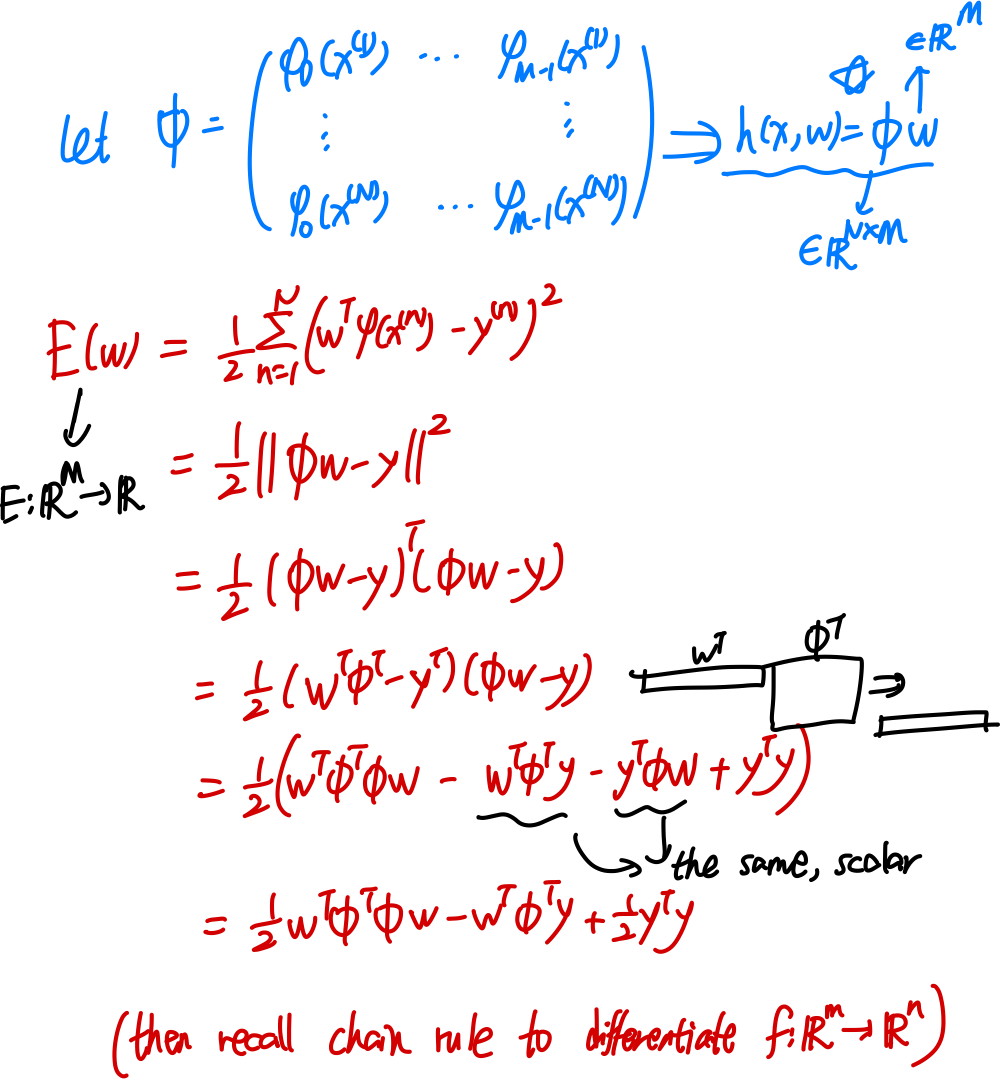 let ϕ = ( φ₀(x⁽¹⁾) ⋯ φ_{M-1}(x⁽¹⁾)
⋮ ⋮
φ₀(x⁽ᴺ⁾) ⋯ φ_{M-1}(x⁽ᴺ⁾) ) ⇒ h(x,w) = ϕw
∈ℝ^M
∈ℝ^{N×M}
E(w) = 1/2 Σ_{n=1}^{N} (w^T φ(x^{(n)}) - y^{(n)})^2
E: ℝ^M → ℝ
= 1/2 ||ϕw - y||^2
= 1/2 (ϕw - y)^T (ϕw - y)
= 1/2 (w^T ϕ^T - y^T)(ϕw - y)
w^T ϕ^T ⇒
= 1/2 (w^T ϕ^T ϕw - w^T ϕ^T y - y^T ϕw + y^T y)
the same, scalar
= 1/2 w^T ϕ^T ϕ w - w^T ϕ^T y + 1/2 y^T y
(then recall chain rule to differentiate f: ℝ^m → ℝ^n)